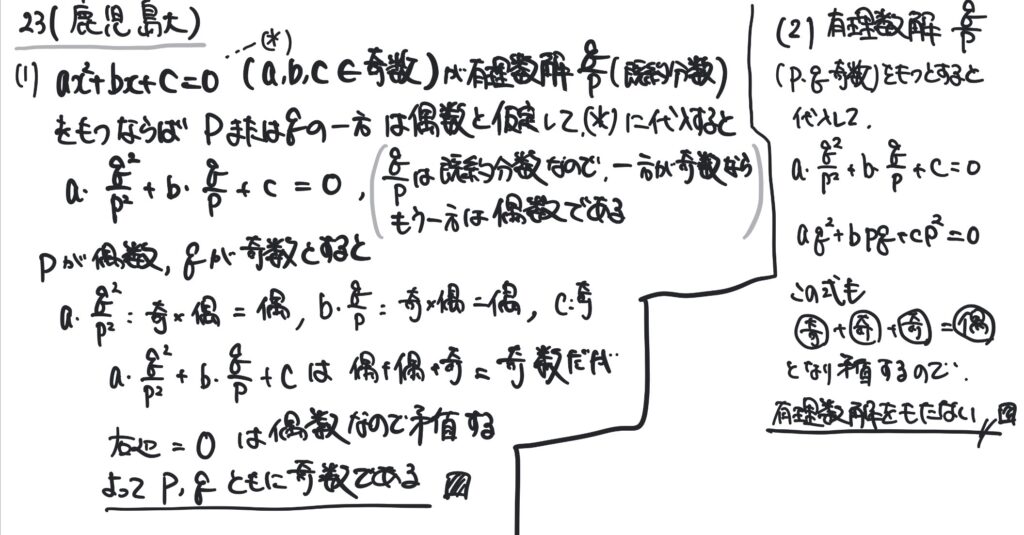 23(鹿児島大)
…(*)
(1) ax²+bx+c=0 (a,b,c∈奇数)が有理数解 q/p (既約分数)
をもつならば Pまたはqの一方は偶数と仮定して、(*)に代入すると
a・q²/p² + b・q/p + c = 0,
(q/pは既約分数なので、一方が奇数なら
もう一方は偶数である)
Pが偶数, qが奇数とすると
a・q²/p² : 奇×偶 = 偶, b・q/p : 奇×偶=偶, c:奇
a・q²/p² + b・q/p + c は 偶+偶+奇 = 奇数だが
右辺 = 0 は偶数なので矛盾する
よって P, q ともに奇数である
(2) 有理数解 q/p
(p, q 奇数)をもつとすると
代入して、
a・q²/p² + b・q/p + c = 0
aq²+bpq+cp²=0
この式も
奇+奇+奇=偶
となり矛盾するので、
有理数解をもたない